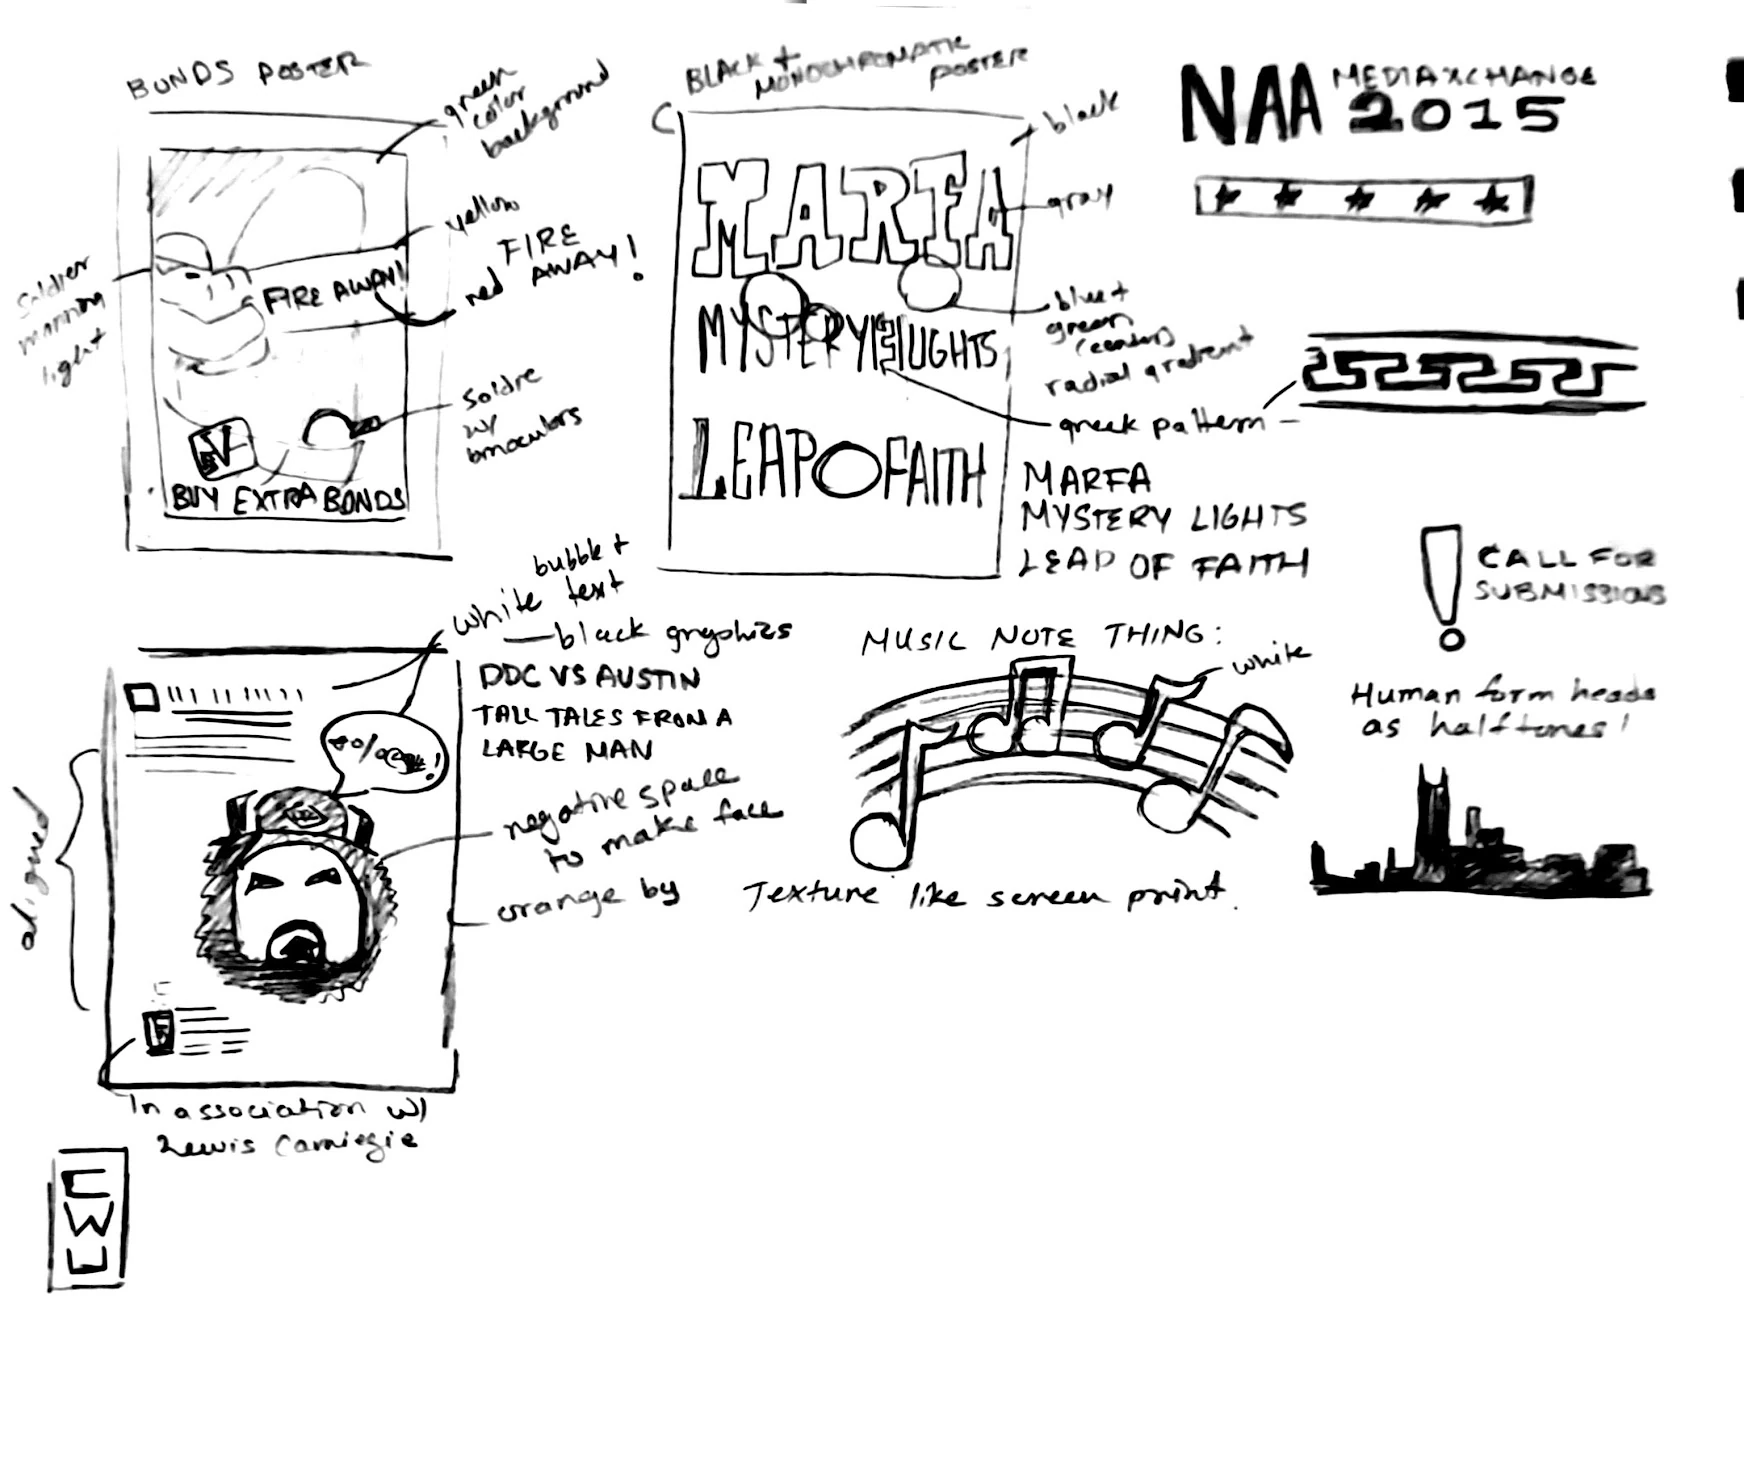 BUNDS POSTER
green
color
background
yellow
FIRE
AWAY!
red
FIRE AWAY!
Soldier
manning
light
Soldre
w/
binoculars
V
BUY EXTRA BONDS
BLACK +
MONOCHROMATIC
POSTER
black
MARFA
gray
MYSTERY LIGHTS
blue +
green
(center)
radial gradient
greek pattern
LEAP OF FAITH
MARFA
MYSTERY LIGHTS
LEAP OF FAITH
NAA MEDIAXCHANGE
2015
CALL FOR
SUBMISSIONS
Human form heads
as halftones!
bubble +
white text
black graphics
DDC VS AUSTIN
TALL TALES FROM A
LARGE MAN
negative space
to make face
orange bg
aligned
In association w/
Lewis Carniegie
MUSIC NOTE THING:
white
Texture like screen print.